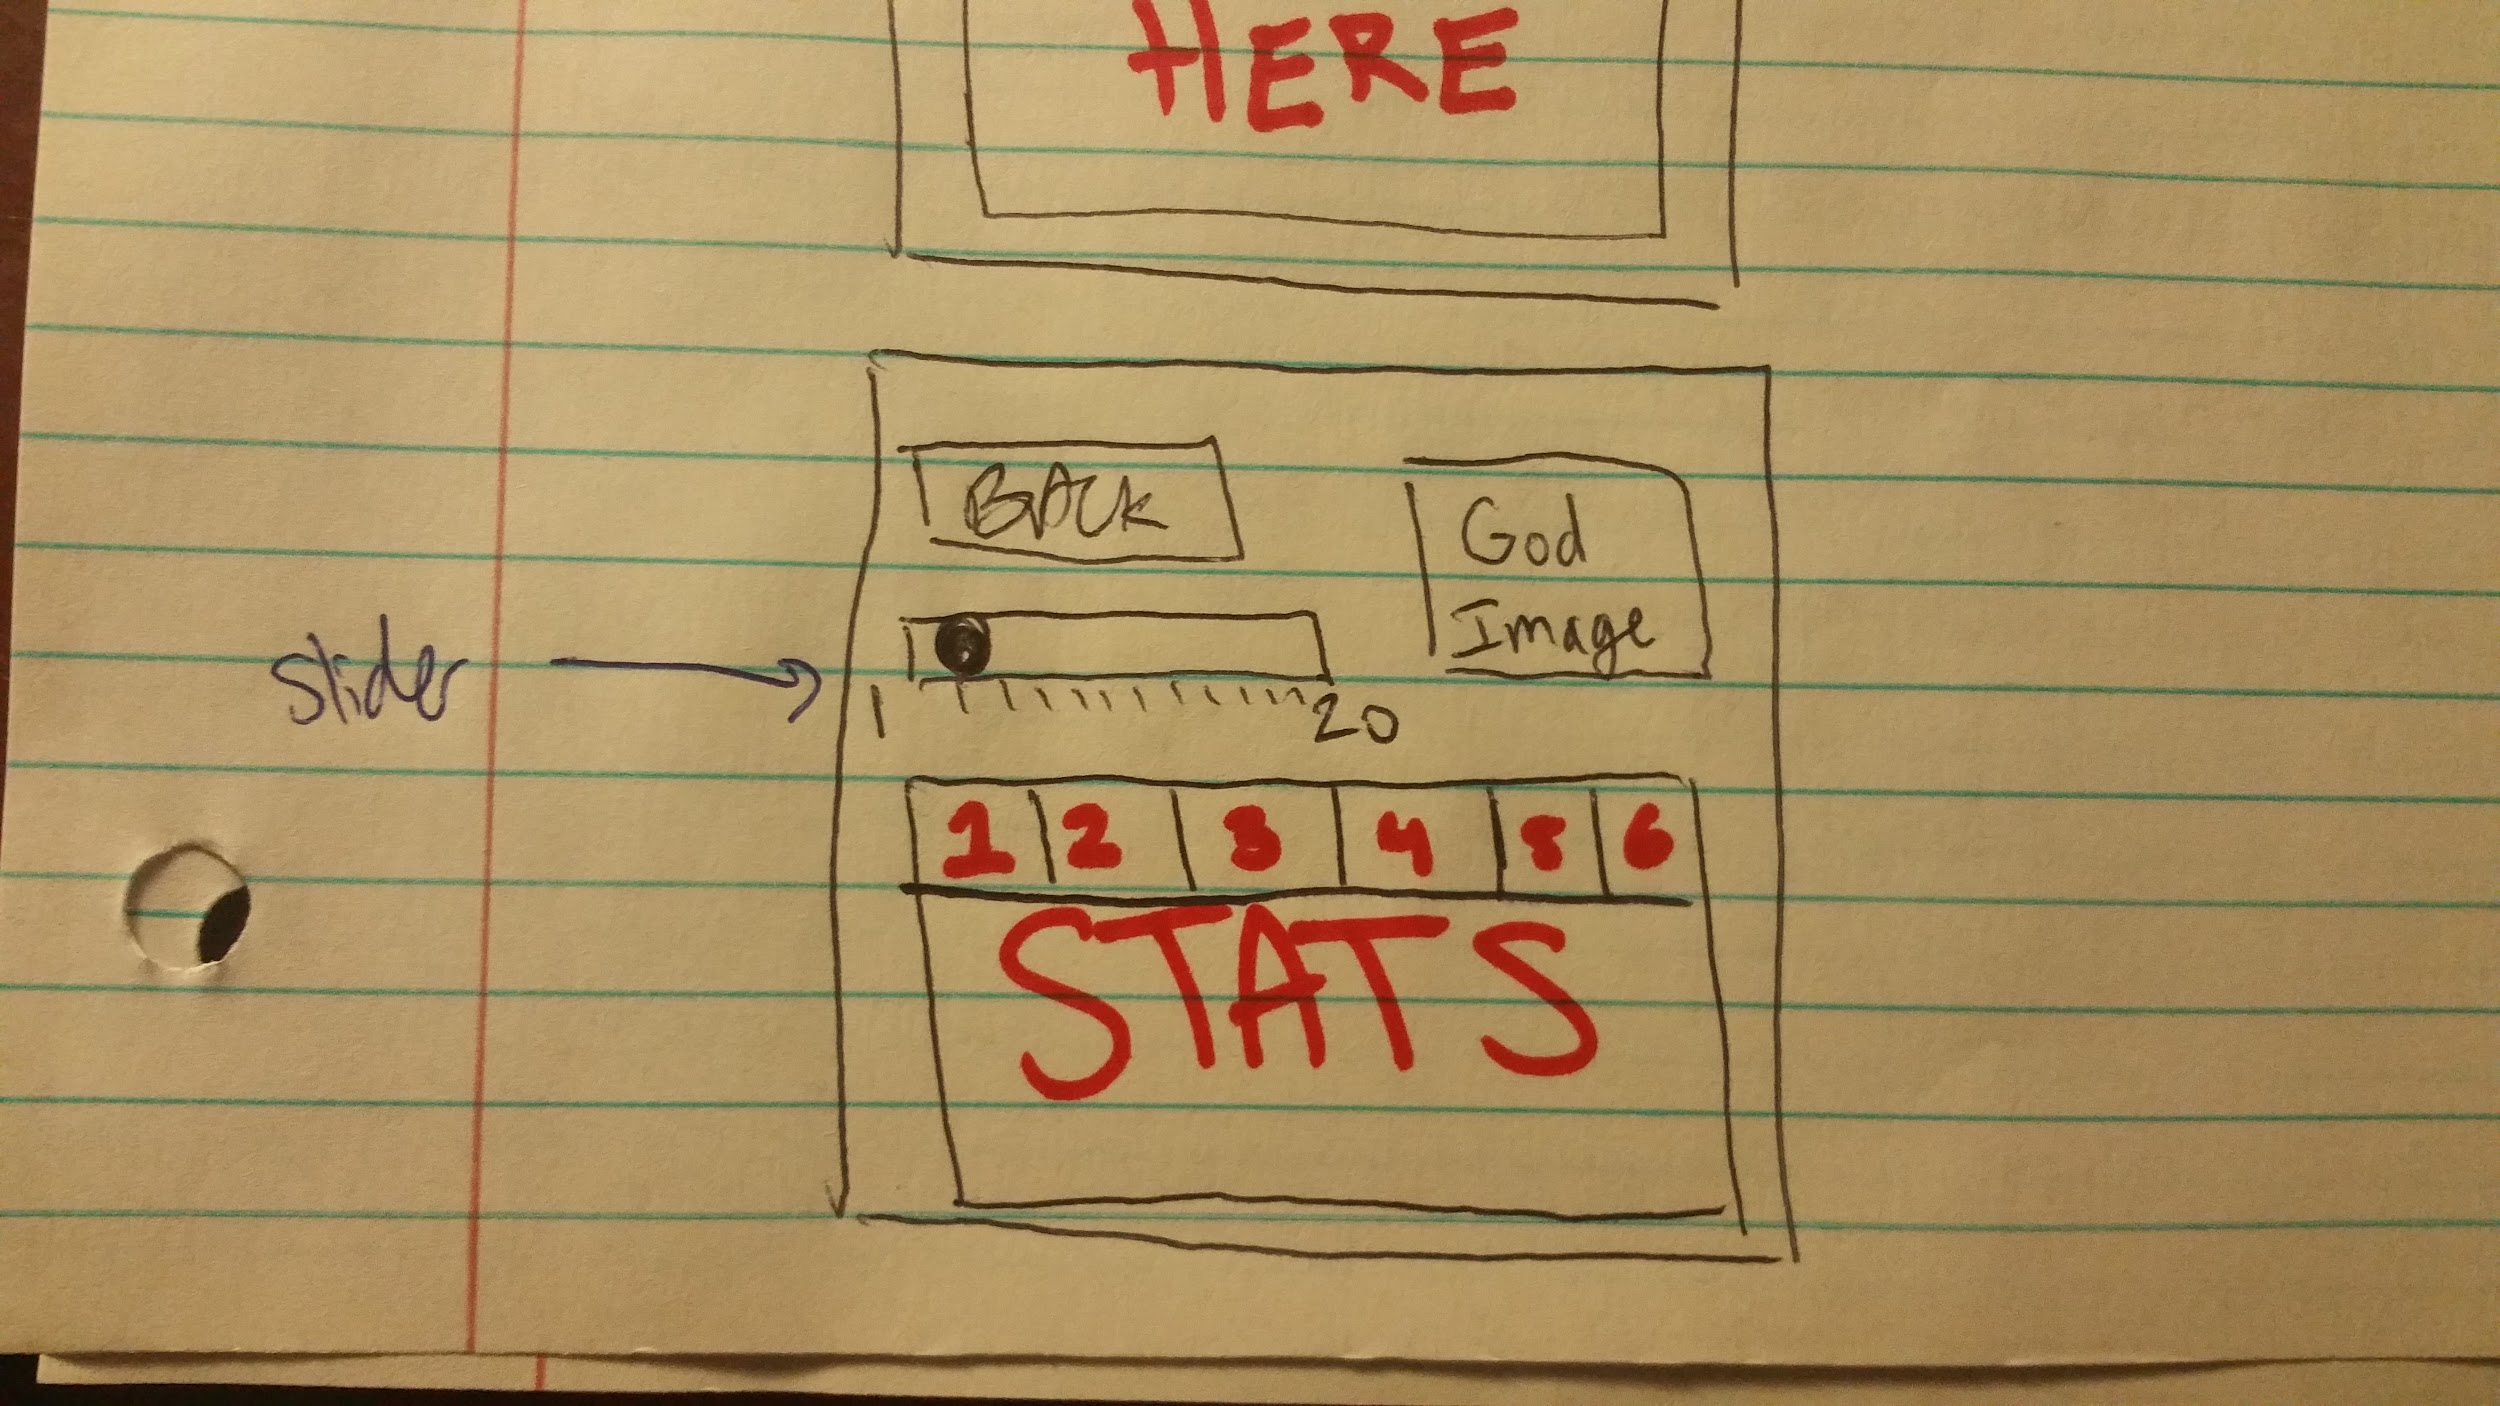 HERE
BACK
God
Image
slider
1 20
1 2 3 4 5 6
STATS